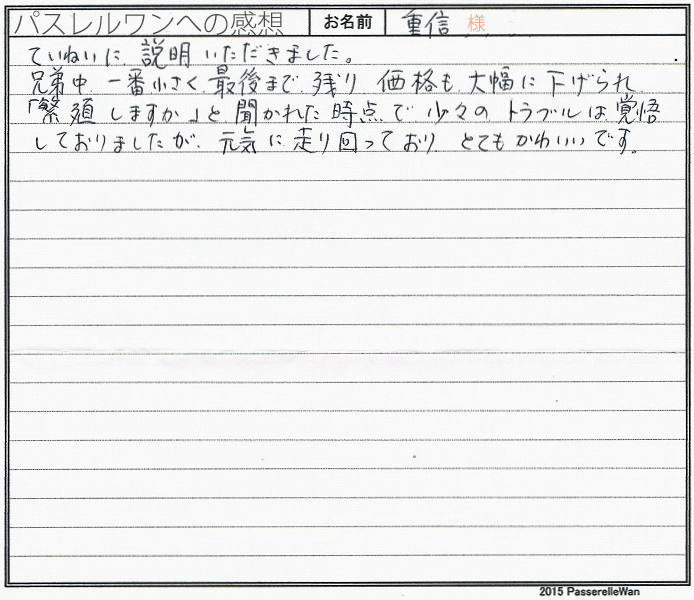 パスレルワンへの感想 お名前 重信 様
ていねいに説明いただきました。
兄弟中、一番小さく、最後まで残り 価格も大幅に下げられ
「繁殖しますか」と聞かれた時点で少々のトラブルは覚悟
しておりましたが、元気に走り回っており、とてもかわいいです。
2015 PasserelleWan